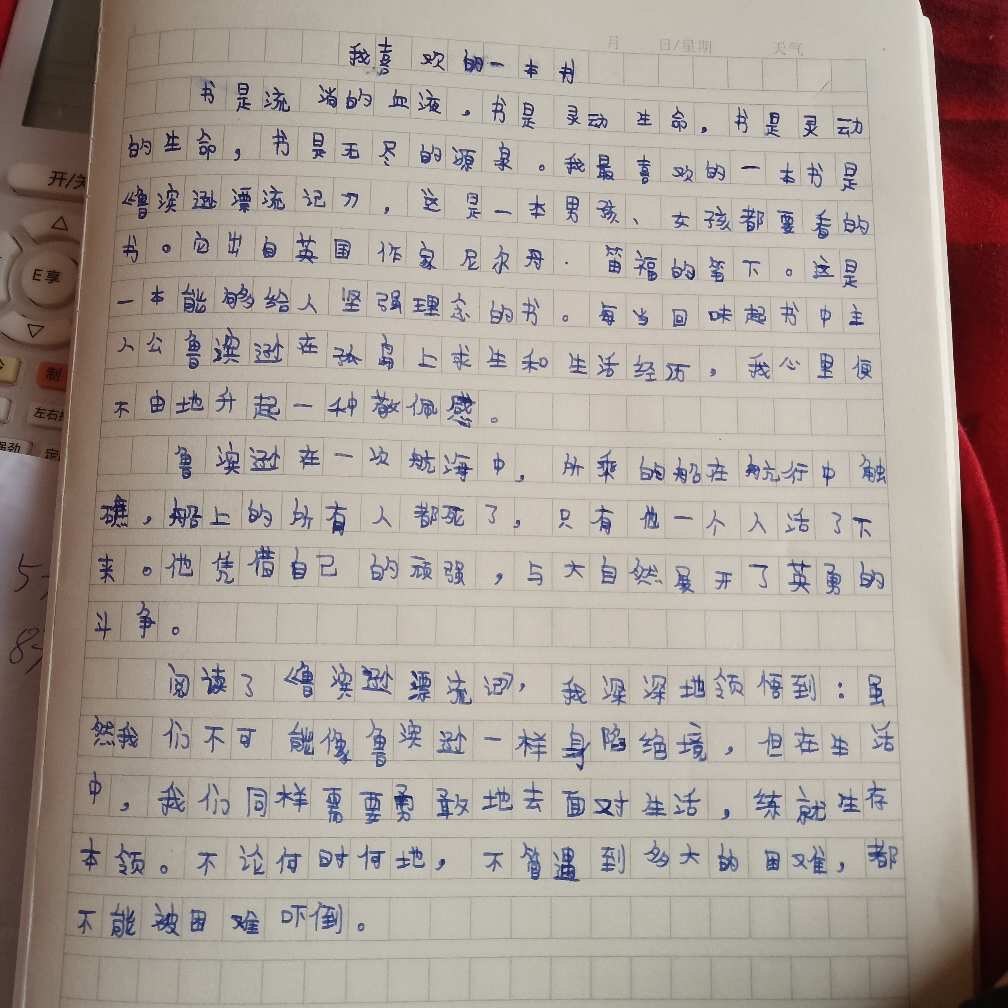 月 日/星期 天气
我喜欢的一本书
书是流淌的血液，书是灵动生命，书是灵动
的生命，书是无尽的源泉。我最喜欢的一本书是
《鲁滨逊漂流记》，这是一本男孩、女孩都要看的
书。它出自英国作家尼尔丹·笛福的笔下。这是
一本能够给人坚强理念的书。每当回味起书中主
人公鲁滨逊在孤岛上求生和生活经历，我心里便
不由地升起一种敬佩感。
鲁滨逊在一次航海中，所乘的船在航行中触
礁，船上的所有人都死了，只有他一个人活了下
来。他凭借自己的顽强，与大自然展开了英勇的
斗争。
阅读了《鲁滨逊漂流记》，我深深地领悟到：虽
然我们不可能像鲁滨逊一样身陷绝境，但在生活
中，我们同样需要勇敢地去面对生活，练就生存
本领。不论何时何地，不管遇到多大的困难，都
不能被困难吓倒。
开/关
E享
制
左右扫
强劲
定